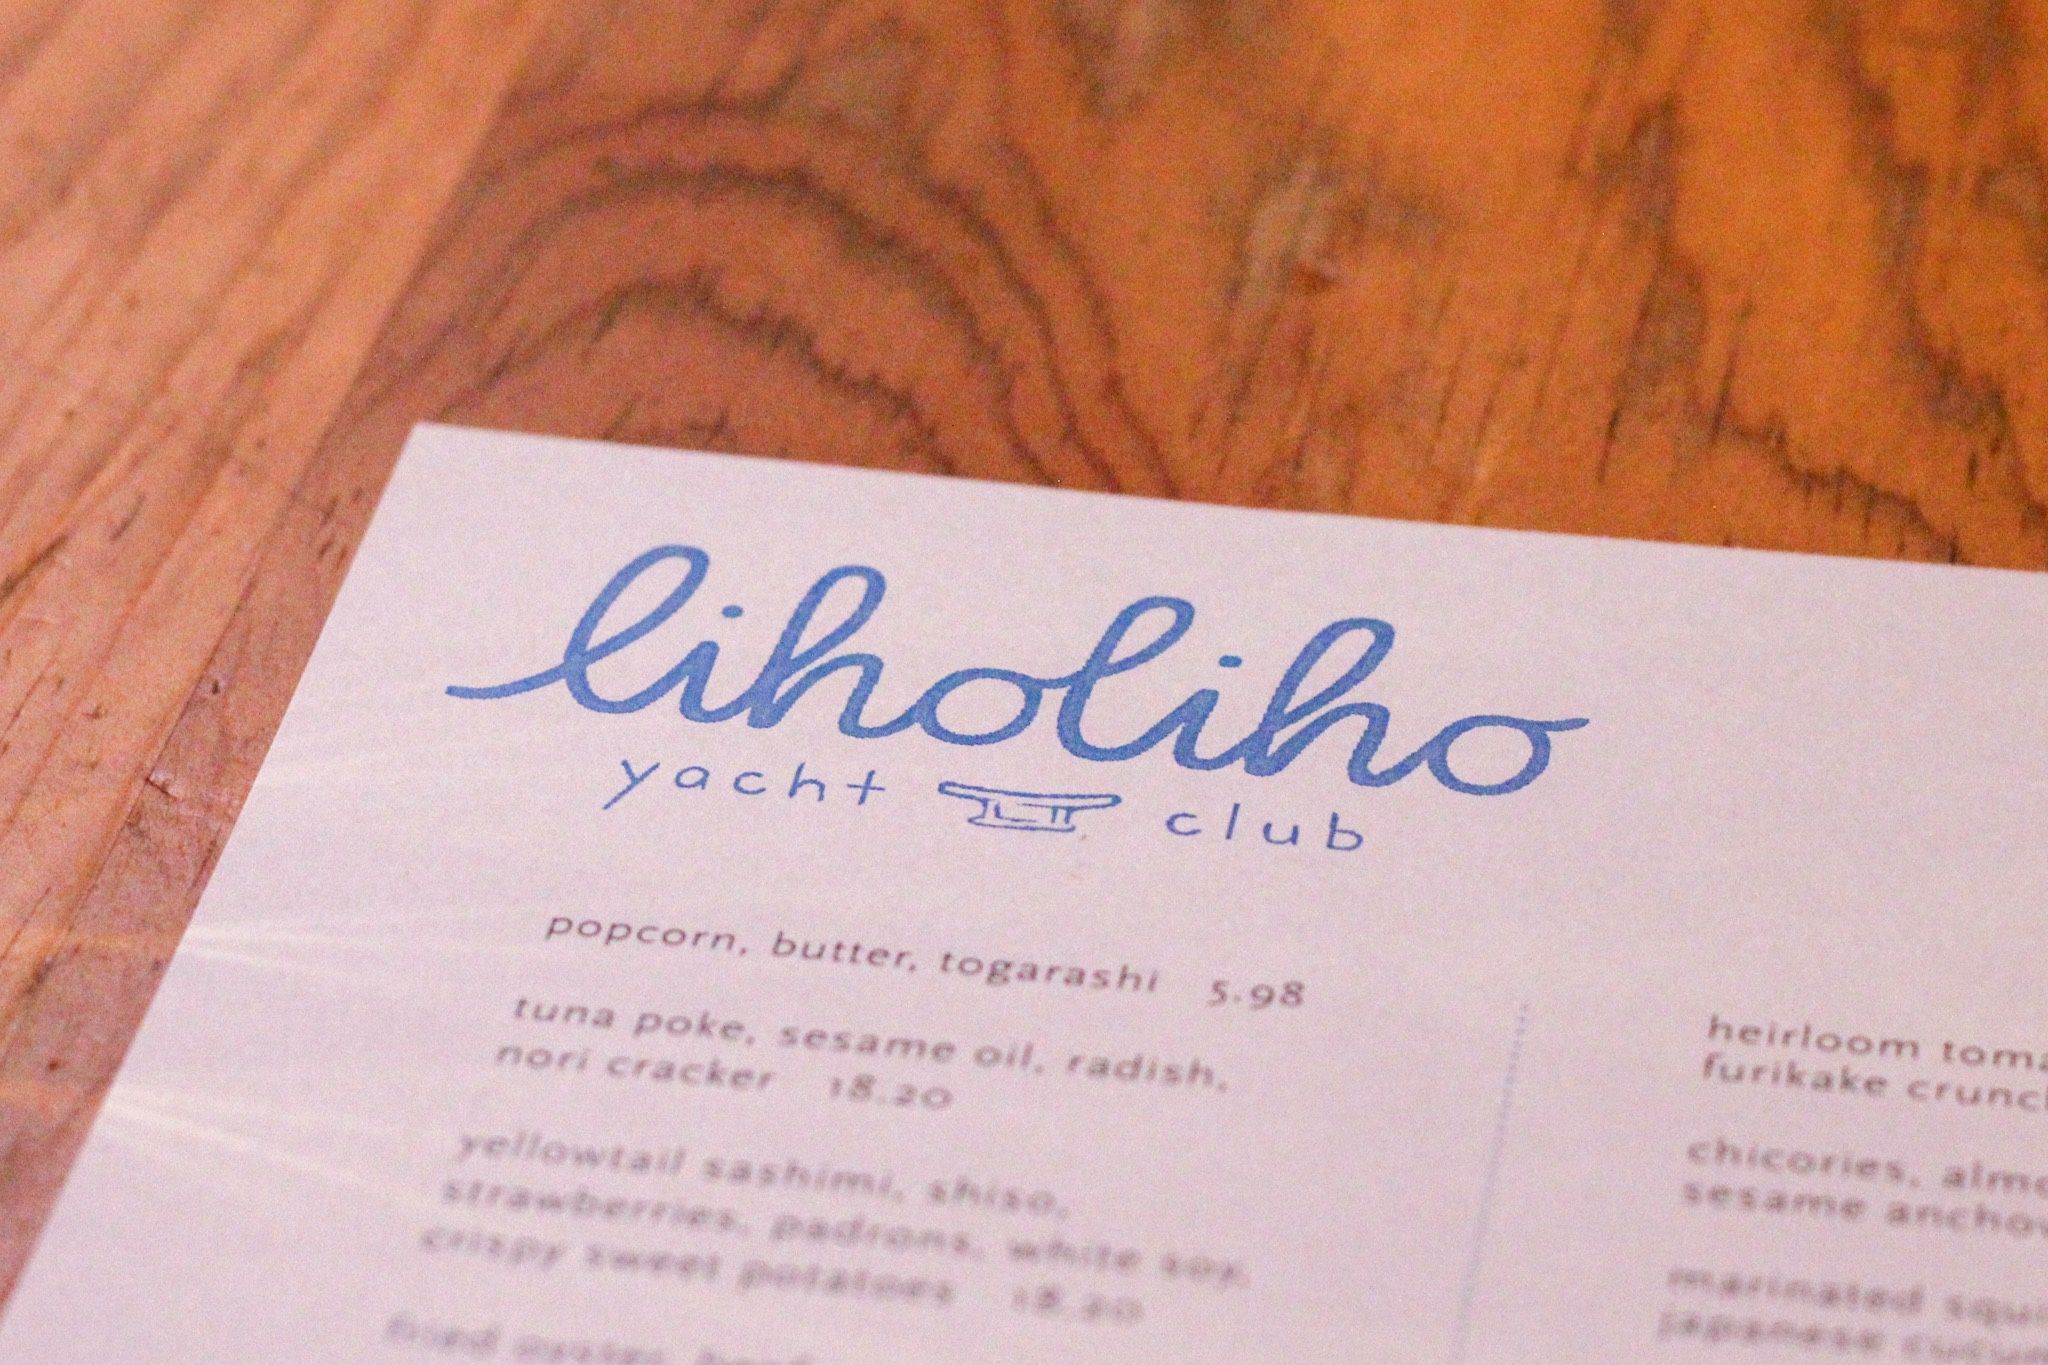 liholiho
yacht club
popcorn, butter, togarashi 5.98
tuna poke, sesame oil, radish,
nori cracker 18.20
yellowtail sashimi, shiso,
strawberries, padrons, white soy,
crispy sweet potatoes 18.20
fried oyster,
heirloom toma
furikake crunch
chicories, almo
sesame anchov
marinated squi
japanese